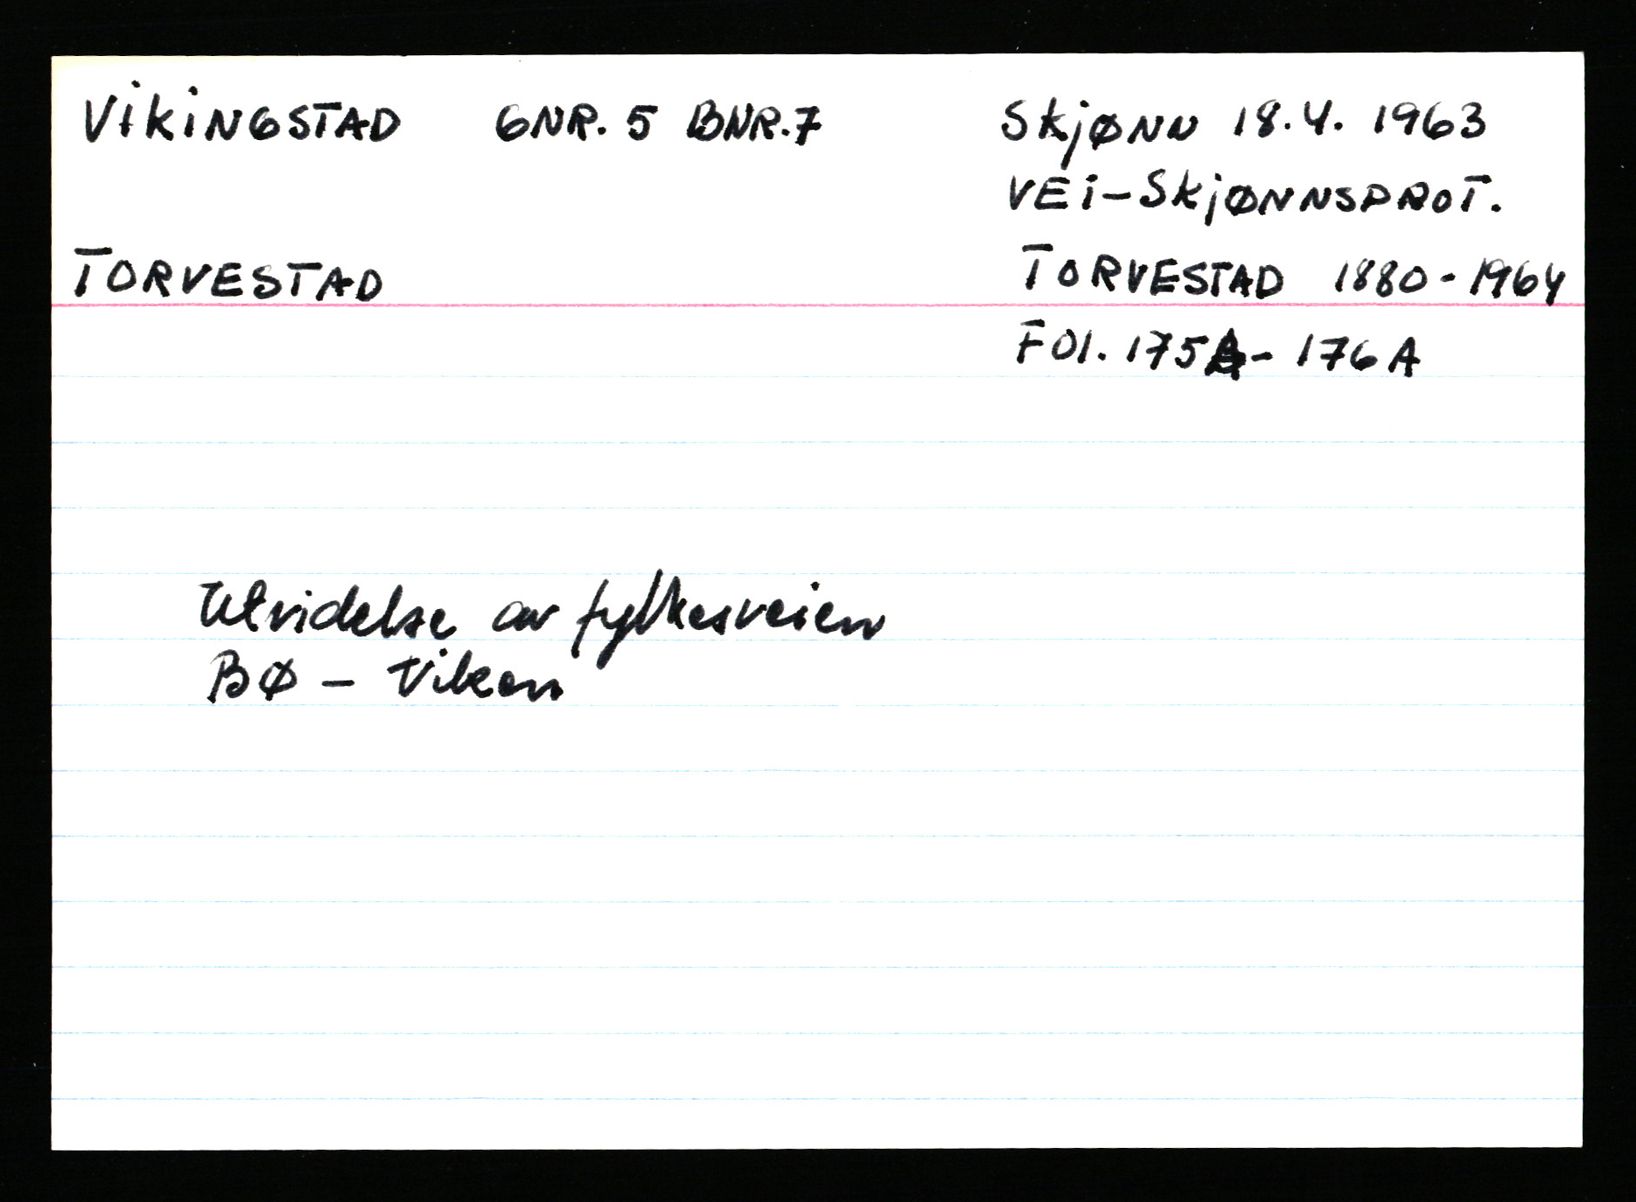 VIKINGSTAD GNR. 5 BNR. 7
SKJØNN 18.4. 1963
VEI-SKJØNNSPROT.
TORVESTAD
TORVESTAD 1880-1964
FOL. 175 - 176 A
Utvidelse av fylkesveien
BØ - Viken